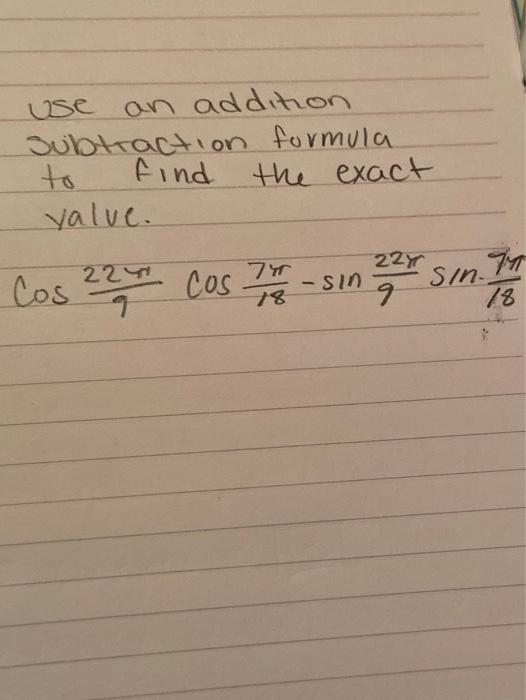 use an addition
subtraction formula
to find the exact
value.
Cos 22π/9 Cos 7π/18 - sin 22π/9 sin 7π/18